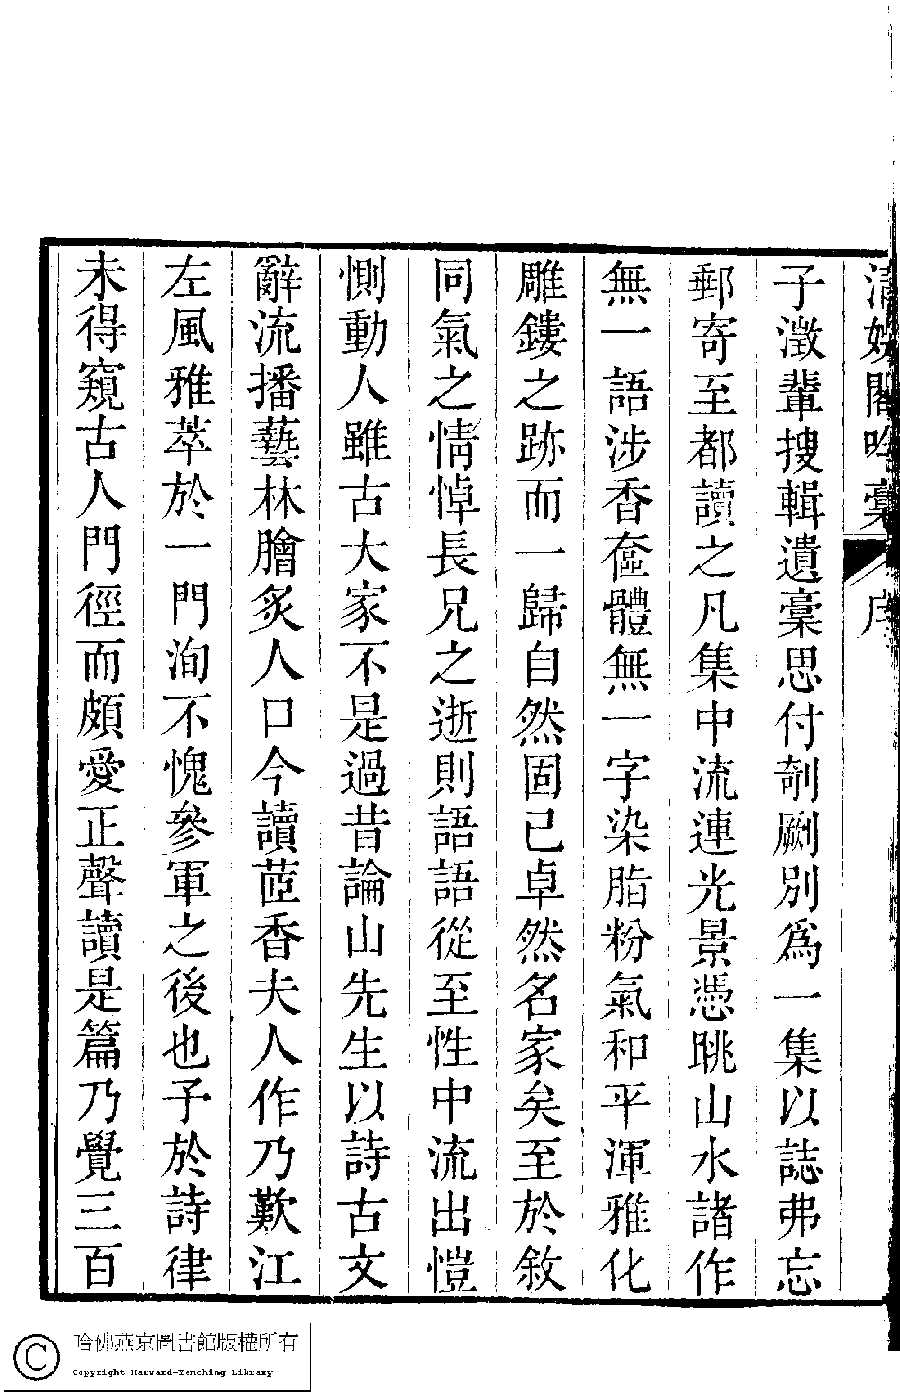 清娛閣吟藁 序
子澂輩搜輯遺藁思付剞劂別爲一集以誌弗忘
郵寄至都讀之凡集中流連光景憑眺山水諸作
無一語涉香奩體無一字染脂粉氣和平渾雅化
雕鏤之跡而一歸自然固已卓然名家矣至於敘
同氣之情悼長兄之逝則語語從至性中流出愷
惻動人雖古大家不是過昔論山先生以詩古文
辭流播藝林膾炙人口今讀茝香夫人作乃歎江
左風雅萃於一門洵不愧參軍之後也予於詩律
未得窺古人門徑而頗愛正聲讀是篇乃覺三百
哈佛燕京圖書館版權所有
Copyright Harvard-Yenching Library